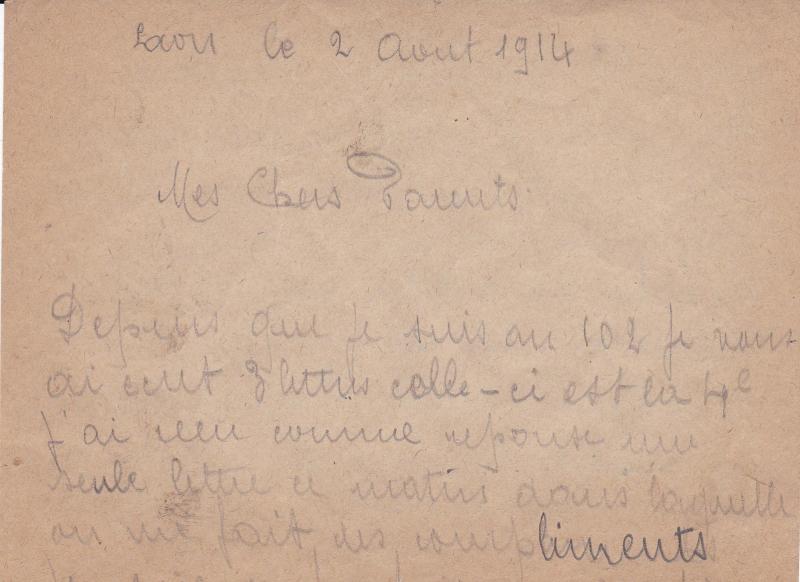 Laon le 2 Aout 1914
Mes Chers Parents
Depuis que je suis au 102 je vous
ai ecrit 3 lettres celle-ci est la 4e
j'ai recu comme reponse une
seule lettre ce matin dans laquelle
on me fait des compliments